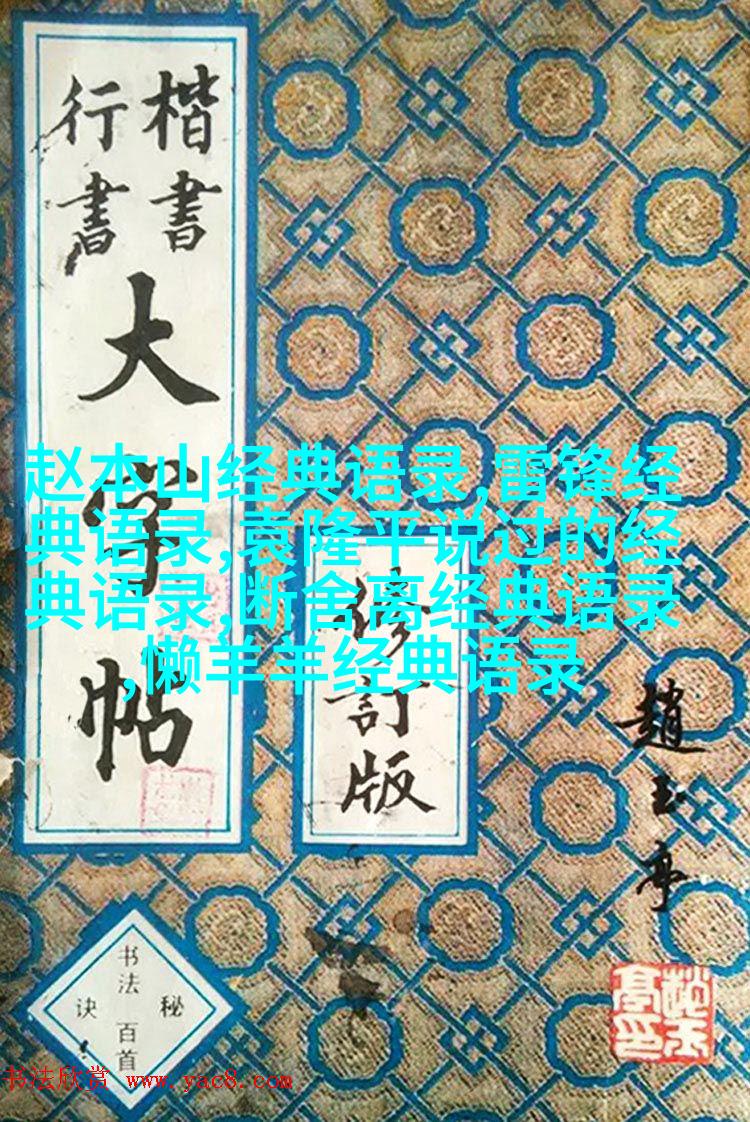 楷書
行書
大字帖
修訂版
趙玉亭
书法百首
秘诀
赵本山经典语录,雷锋经
典语录,袁隆平说过的经
典语录,断舍离经典语录
,懒羊羊经典语录
书法欣赏 www.yac8.com